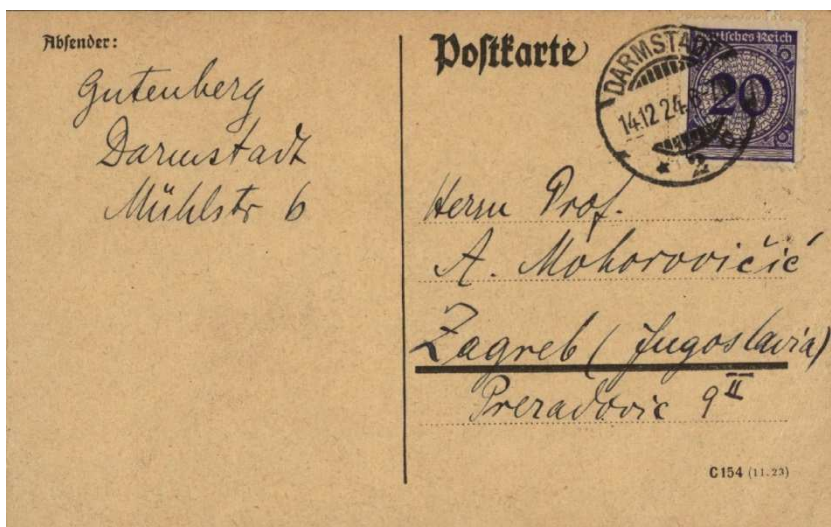 Absender:
Gutenberg
Darmstadt
Mühlstr 6
Postkarte
DARMSTADT
14.12.24.
* 2
Deutsches Reich
20
Herrn Prof.
A. Mohorovičić
Zagreb (Jugoslavia)
Preradovic 9 II
C 154 (11.23)